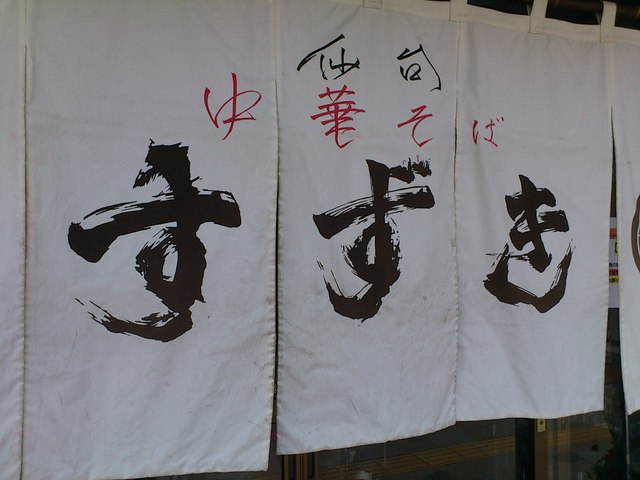 仙台
中華そば
すずき